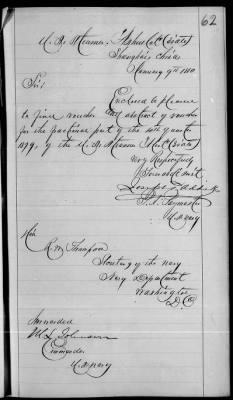 62
U.S. Steamer Ashuelot (3rd rate)
Shanghai China
January 9th 1880
Sir:
Enclosed to please
to find voucher and abstract of voucher
for the fractional part of the 4th quarter
1879, of the U.S. Steamer Ashuelot (3rd rate)
Very Respectfully
Your obdt servt
Joseph
P.A. Paymaster
U.S. Navy
Hon
R. W. Thompson
Secretary of the Navy
Navy Department
Washington
D.C.
Forwarded
M. L. Johnson
Commander
U.S. Navy